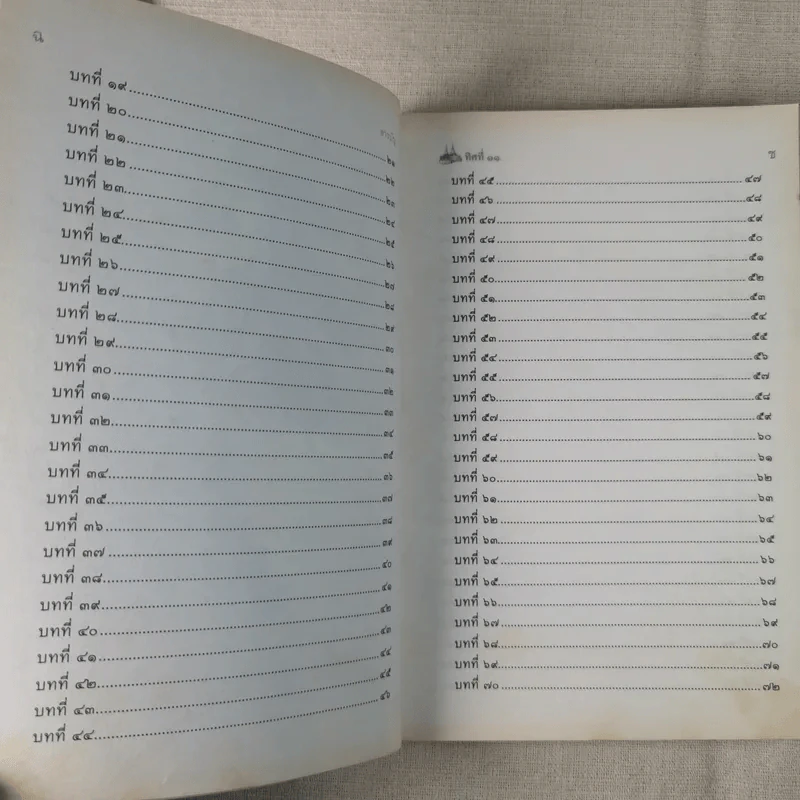 ฉ
บทที่ ๑๙ ๒๑
บทที่ ๒๐ ๒๒
บทที่ ๒๑ ๒๓
บทที่ ๒๒ ๒๔
บทที่ ๒๓ ๒๕
บทที่ ๒๔ ๒๖
บทที่ ๒๕ ๒๗
บทที่ ๒๖ ๒๘
บทที่ ๒๗ ๒๙
บทที่ ๒๘ ๓๐
บทที่ ๒๙ ๓๑
บทที่ ๓๐ ๓๒
บทที่ ๓๑ ๓๓
บทที่ ๓๒ ๓๔
บทที่ ๓๓ ๓๕
บทที่ ๓๔ ๓๖
บทที่ ๓๕ ๓๗
บทที่ ๓๖ ๓๘
บทที่ ๓๗ ๓๙
บทที่ ๓๘ ๔๐
บทที่ ๓๙ ๔๑
บทที่ ๔๐ ๔๒
บทที่ ๔๑ ๔๓
บทที่ ๔๒ ๔๔
บทที่ ๔๓ ๔๕
บทที่ ๔๔ ๔๖
ทิศที่ ๑๑ ช
บทที่ ๔๕ ๔๗
บทที่ ๔๖ ๔๘
บทที่ ๔๗ ๔๙
บทที่ ๔๘ ๕๐
บทที่ ๔๙ ๕๑
บทที่ ๕๐ ๕๒
บทที่ ๕๑ ๕๓
บทที่ ๕๒ ๕๔
บทที่ ๕๓ ๕๕
บทที่ ๕๔ ๕๖
บทที่ ๕๕ ๕๗
บทที่ ๕๖ ๕๘
บทที่ ๕๗ ๕๙
บทที่ ๕๘ ๖๐
บทที่ ๕๙ ๖๑
บทที่ ๖๐ ๖๒
บทที่ ๖๑ ๖๓
บทที่ ๖๒ ๖๔
บทที่ ๖๓ ๖๕
บทที่ ๖๔ ๖๖
บทที่ ๖๕ ๖๗
บทที่ ๖๖ ๖๘
บทที่ ๖๗ ๖๙
บทที่ ๖๘ ๗๐
บทที่ ๖๙ ๗๑
บทที่ ๗๐ ๗๒